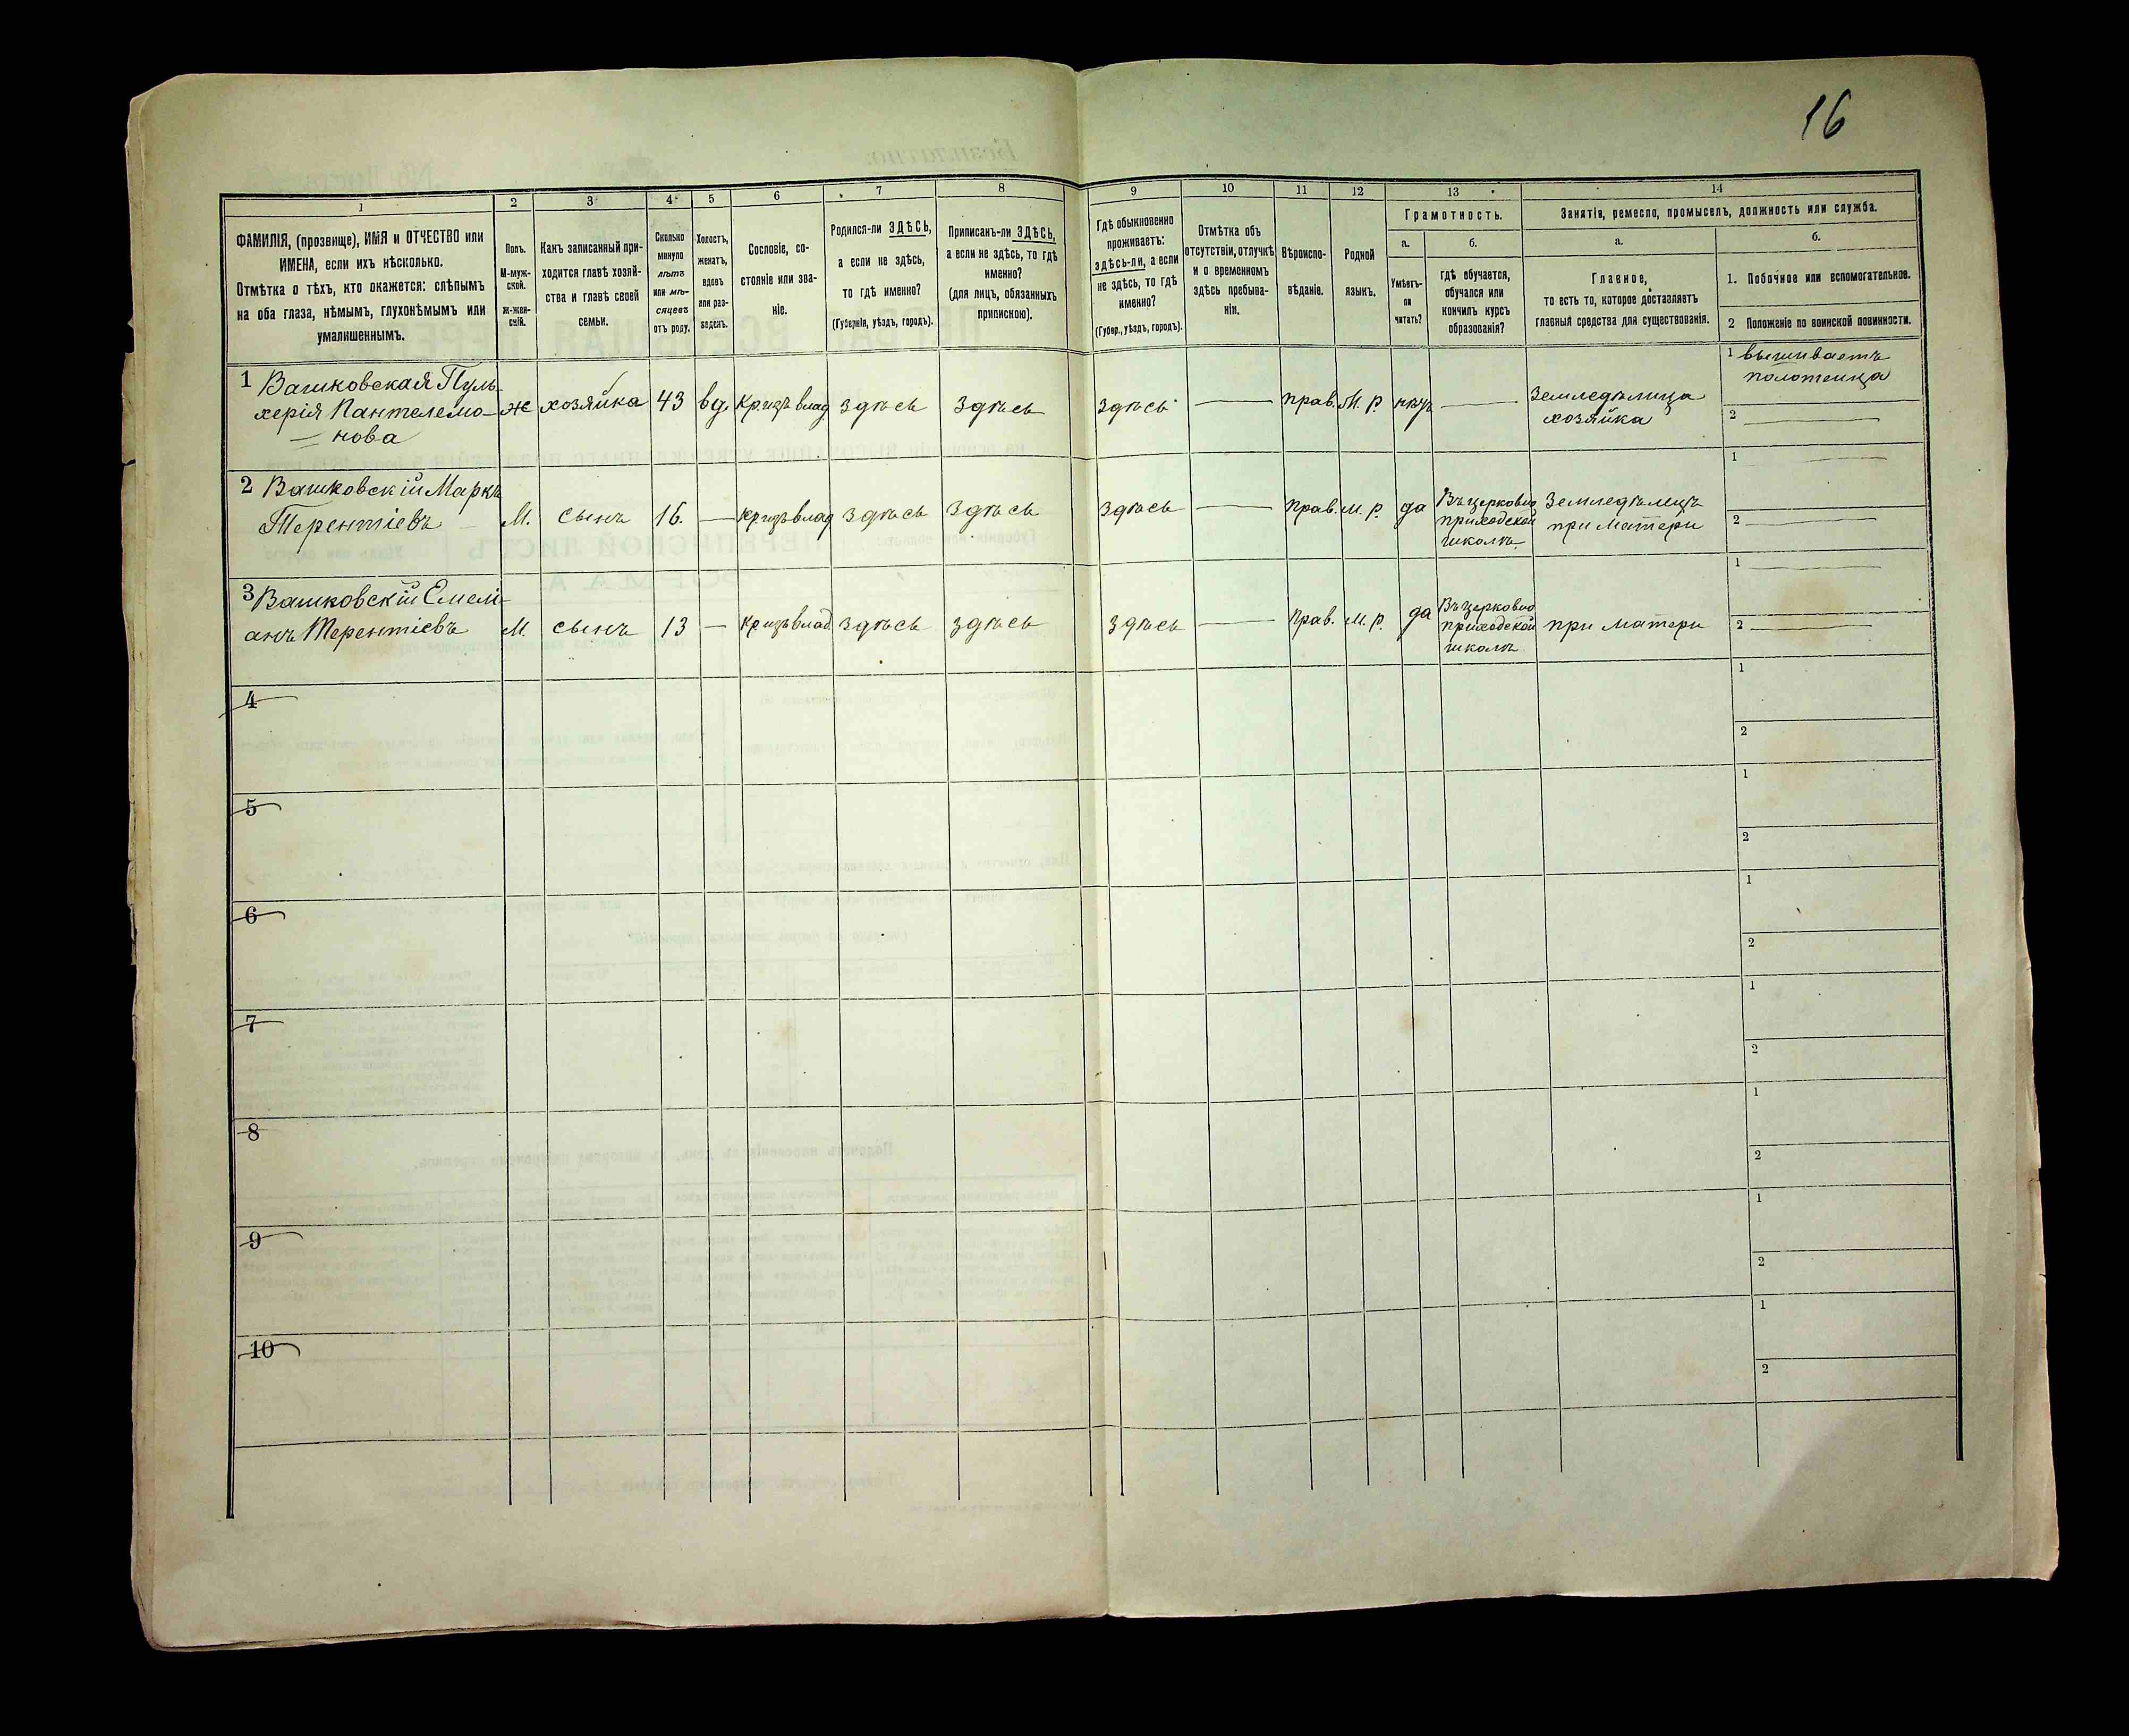 16
1
2
3
4
5
6
7
8
9
10
11
12
13
14
ФАМИЛІЯ, (прозвище), ИМЯ и ОТЧЕСТВО или
ИМЕНА, если ихъ нѣсколько.
Отмѣтка о тѣхъ, кто окажется: слѣпымъ
на оба глаза, нѣмымъ, глухонѣмымъ или
умалишеннымъ.
Полъ.
М-муж-
ской.
Ж-жен-
скій.
Какъ записанный при-
ходится главѣ хозяй-
ства и главѣ своей
семьи.
Сколько
минуло
лѣтъ
или мѣ-
сяцевъ
отъ роду.
Холостъ,
женатъ,
вдовъ
или раз-
веденъ.
Сословіе, со-
стояніе или зва-
ніе.
Родился-ли ЗДѢСЬ,
а если не здѣсь,
то гдѣ именно?
(Губернія, уѣздъ, городъ).
Приписанъ-ли ЗДѢСЬ,
а если не здѣсь, то гдѣ
именно?
(для лицъ, обязанныхъ
припискою).
Гдѣ обыкновенно
проживаетъ:
здѣсь-ли, а если
не здѣсь, то гдѣ
именно?
(Губер., уѣздъ, городъ).
Отмѣтка объ
отсутствіи, отлучкѣ
и о временномъ
здѣсь пребыва-
ніи.
Вѣроиспо-
вѣданіе.
Родной
языкъ.
Грамотность.
а.
Умѣетъ-
ли
читать?
б.
гдѣ обучается,
обучался или
кончилъ курсъ
образованія?
Занятія, ремесло, промыселъ, должность или служба.
а.
Главное,
то есть то, которое доставляетъ
главныя средства для существованія.
б.
1. Побочное или вспомогательное.
2 Положеніе по воинской повинности.
1 Вашковская Пуль-
херія Пантелемо-
нова
ж
хозяйка
43
вд.
Кр. изъ влад
здѣсь
здѣсь
здѣсь
—
прав.
М. р.
нѣтъ
—
Земледѣлица
хозяйка
1 вышиваетъ
полотенца
2 —
2 Вашковскій Маркъ
Терентіевъ
М.
сынъ
16.
—
кр. изъ влад
здѣсь
здѣсь
здѣсь
—
прав.
м. р.
да
Въ церковно
приходской
школѣ.
Земледѣлецъ
при матери
1 —
2 —
3 Вашковскій Емелі-
анъ Терентіевъ
М.
сынъ
13
—
Кр изъ влад
здѣсь
здѣсь
здѣсь
—
прав.
м. р.
да
Въ церковно
приходской
школѣ
при матери
1 —
2 —
4
1
2
5
1
2
6
1
2
7
1
2
8
1
2
9
1
2
10
1
2